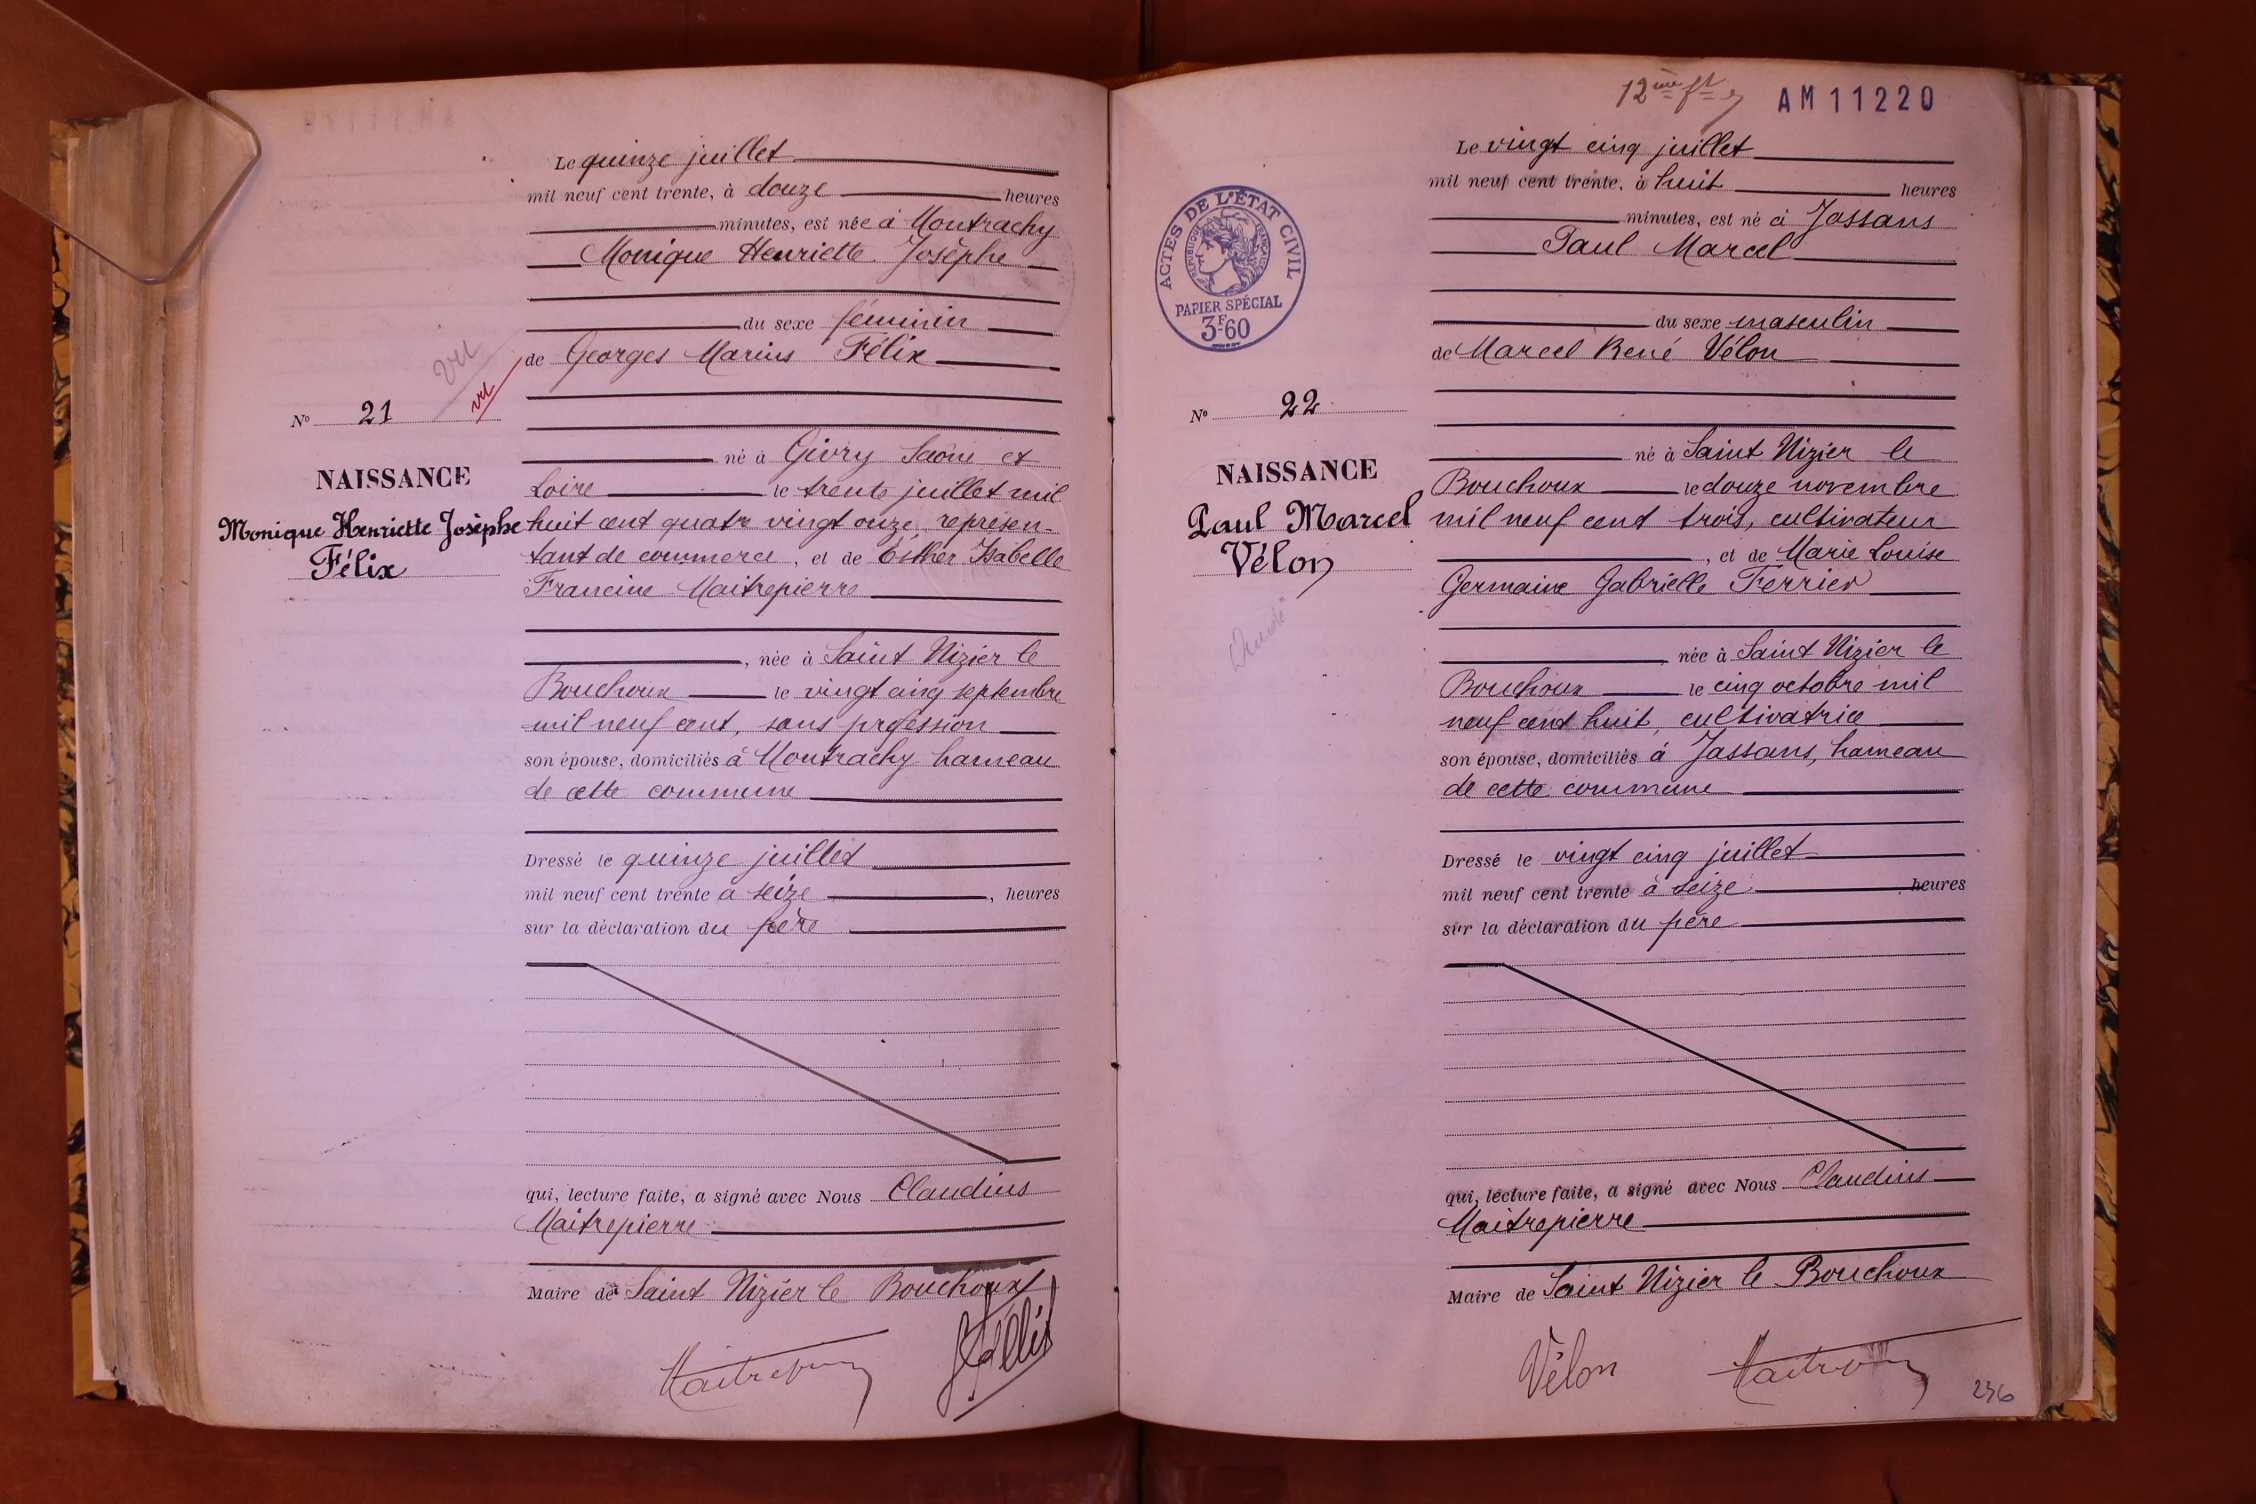 Le quinze juillet
mil neuf cent trente, à douze heures
minutes, est née à Montrachy
Monique Henriette Josèphe
du sexe féminin
de Georges Marius Félix
vu
vu
N° 21
NAISSANCE
Monique Henriette Josèphe
Félix
né à Givry Saône et
Loire le trente juillet mil
huit cent quatre vingt onze, représen-
tant de commerce, et de Esther Isabelle
Francine Maitrepierre
, née à Saint Nizier le
Bouchoux le vingt cinq septembre
mil neuf cent, sans profession
son épouse, domiciliés à Montrachy hameau
de cette commune
Dressé le quinze juillet
mil neuf cent trente à seize, heures
sur la déclaration du père
qui, lecture faite, a signé avec Nous Claudius
Maitrepierre
Maire de Saint Nizier le Bouchoux
Maitrepierre
12ème ft
AM11220
ACTES DE L'ÉTAT CIVIL
RÉPUBLIQUE FRANÇAISE
PAPIER SPÉCIAL
3F60
Le vingt cinq juillet
mil neuf cent trente, à huit heures
minutes, est né à Jassans
Paul Marcel
du sexe masculin
de Marcel René Vélon
N° 22
NAISSANCE
Paul Marcel
Vélon
né à Saint Nizier le
Bouchoux le douze novembre
mil neuf cent trois, cultivateur
, et de Marie Louise
Germaine Gabrielle Ferrier
, née à Saint Nizier le
Bouchoux le cinq octobre mil
neuf cent huit, cultivatrice
son épouse, domiciliés à Jassans, hameau
de cette commune
Dressé le vingt cinq juillet
mil neuf cent trente à seize heures
sur la déclaration du père
qui, lecture faite, a signé avec Nous Claudius
Maitrepierre
Maire de Saint Nizier le Bouchoux
Vélon Maitrepierre
236